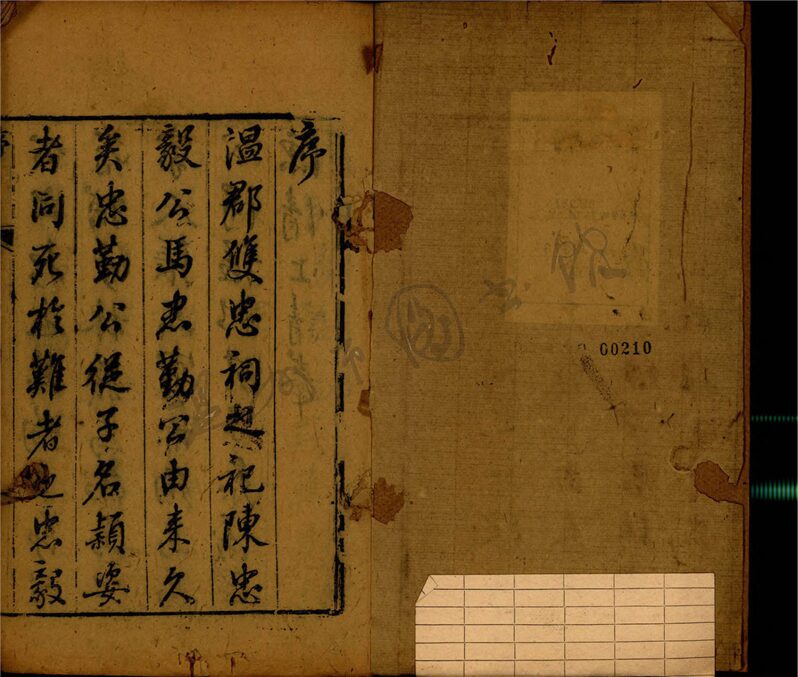 序
溫郡雙忠祠起祀陳忠
毅公馬忠勤公由来久
矣忠勤公從子名頴姿
者同死於難者也忠毅
00210